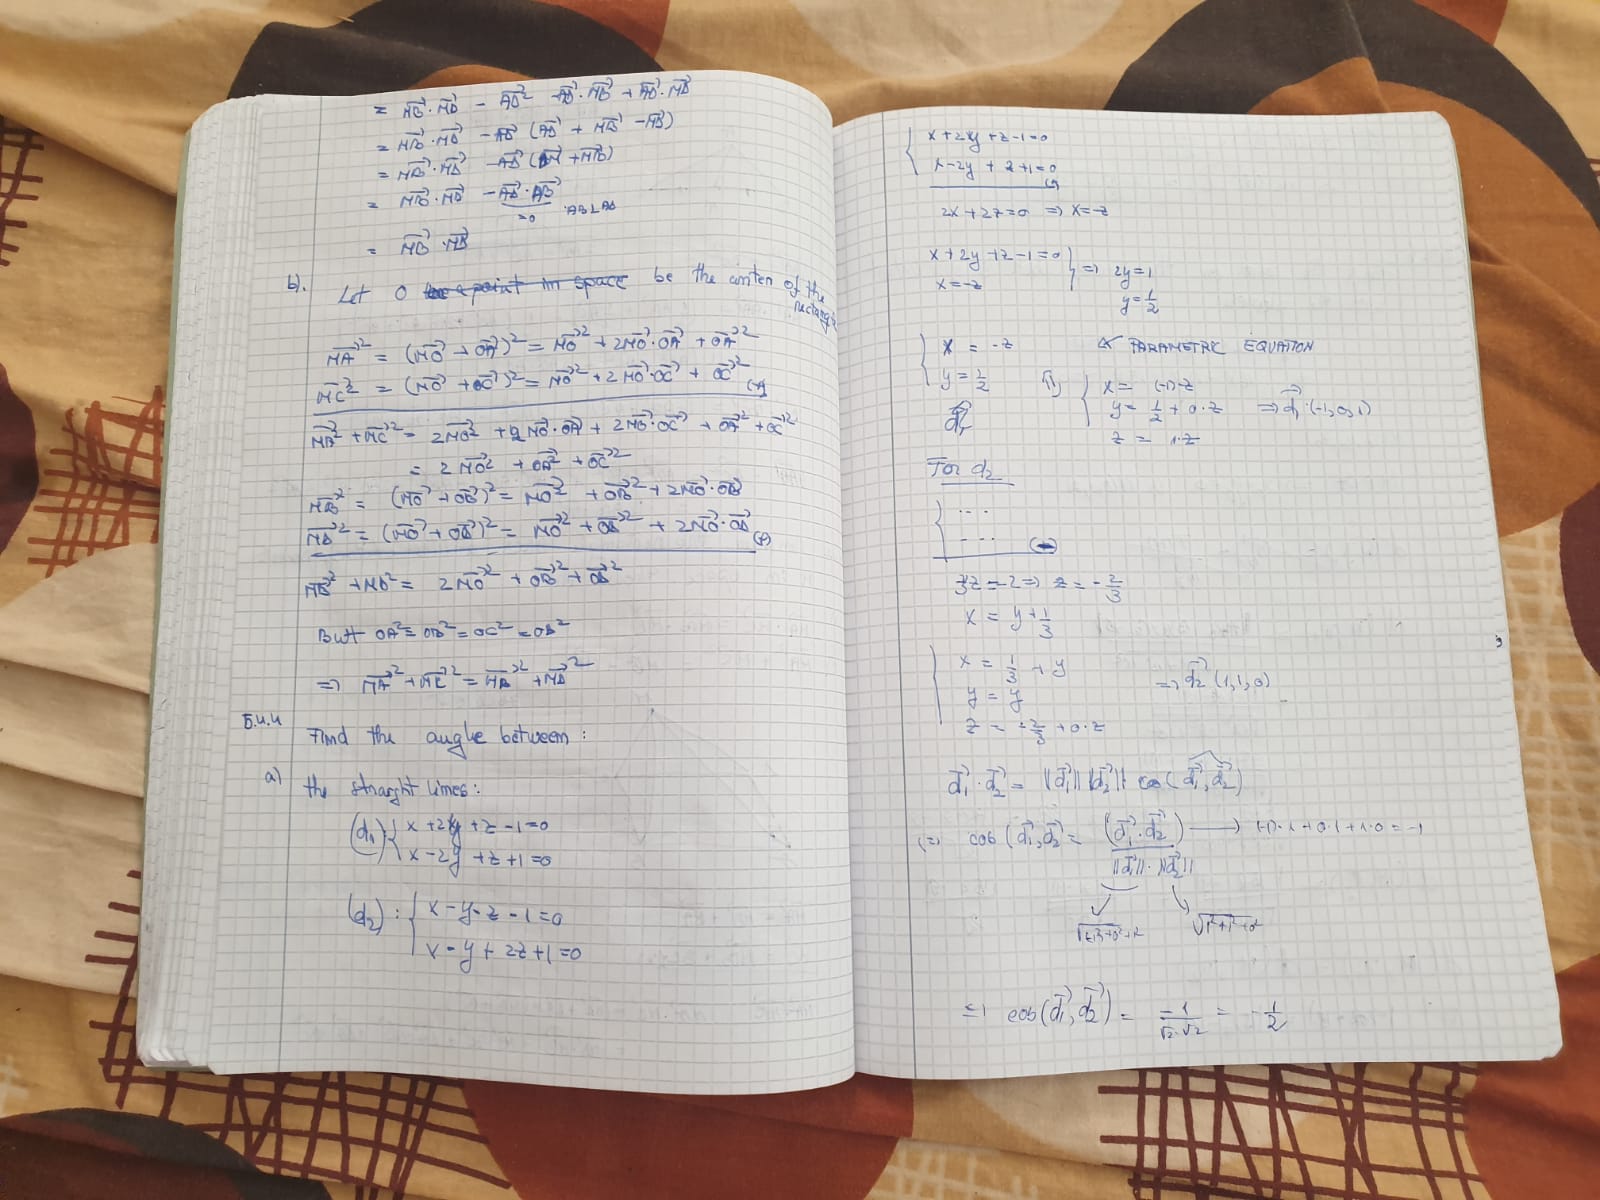 = MB⃗·MD⃗ - AD⃗² - AD⃗·MB⃗ + AD⃗·MD⃗
= MB⃗·MD⃗ - AD⃗ (AD⃗ + MB⃗ - MD⃗)
= MB⃗·MD⃗ - AD⃗ ( + MB⃗)
= MB⃗·MD⃗ - AD⃗·AB⃗
=0 AB⊥AD
= MB⃗·MD⃗
b). Let O be the center of the
rectangle
MA⃗² = (MO⃗ + OA⃗)² = MO⃗² + 2MO⃗·OA⃗ + OA⃗²
MC⃗² = (MO⃗ + OC⃗)² = MO⃗² + 2MO⃗·OC⃗ + OC⃗² (+)
+ MC⃗² = 2MO⃗² + 2MO⃗·OA⃗ + 2MO⃗·OC⃗ + OA⃗² + OC⃗²
= 2MO⃗² + OA⃗² + OC⃗²
MB⃗² = (MO⃗ + OB⃗)² = MO⃗² + OB⃗² + 2MO⃗·OB⃗
MD⃗² = (MO⃗ + OD⃗)² = MO⃗² + OD⃗² + 2MO⃗·OD⃗ (+)
MB⃗² + MD² = 2MO⃗² + OB⃗² + OD⃗²
But OA² = OB² = OC² = OD²
=> MA⃗² + MC⃗² = MB⃗² + MD⃗²
5.4.4 Find the angle between:
a) the straight lines:
(d₁) { x + 2y + z - 1 = 0
x - 2y + z + 1 = 0
(d₂) : { x - y - z - 1 = 0
x - y + 2z + 1 = 0
{ x + 2y + z - 1 = 0
x - 2y + z + 1 = 0
2x + 2z = 0 => x = -z
x + 2y + z - 1 = 0 } => 2y = 1
x = -z
y = 1/2
{ x = -z PARAMETRIC EQUATION
y = 1/2 { x = (-1)·z
y = 1/2 + 0·z => d₁⃗ (-1,0,1)
z = 1·z
d₁⃗
For d₂
{ ...
... (-)
3z = -2 => z = -2/3
x = y + 1/3
{ x = 1/3 + y
y = y => d₂⃗ (1,1,0)
z = -2/3 + 0·z
d₁⃗·d₂⃗ = ||d₁⃗|| ||d₂⃗|| cos(d₁⃗,d₂⃗)
(=) cos(d₁⃗,d₂⃗) = (d₁⃗·d₂⃗) → (-1)·1 + 0·1 + 1·0 = -1
||d₁⃗||·||d₂⃗||
√(-1)²+0²+1² √1²+1²+0²
cos(d₁⃗,d₂⃗) = -1/√2·√2 = -1/2